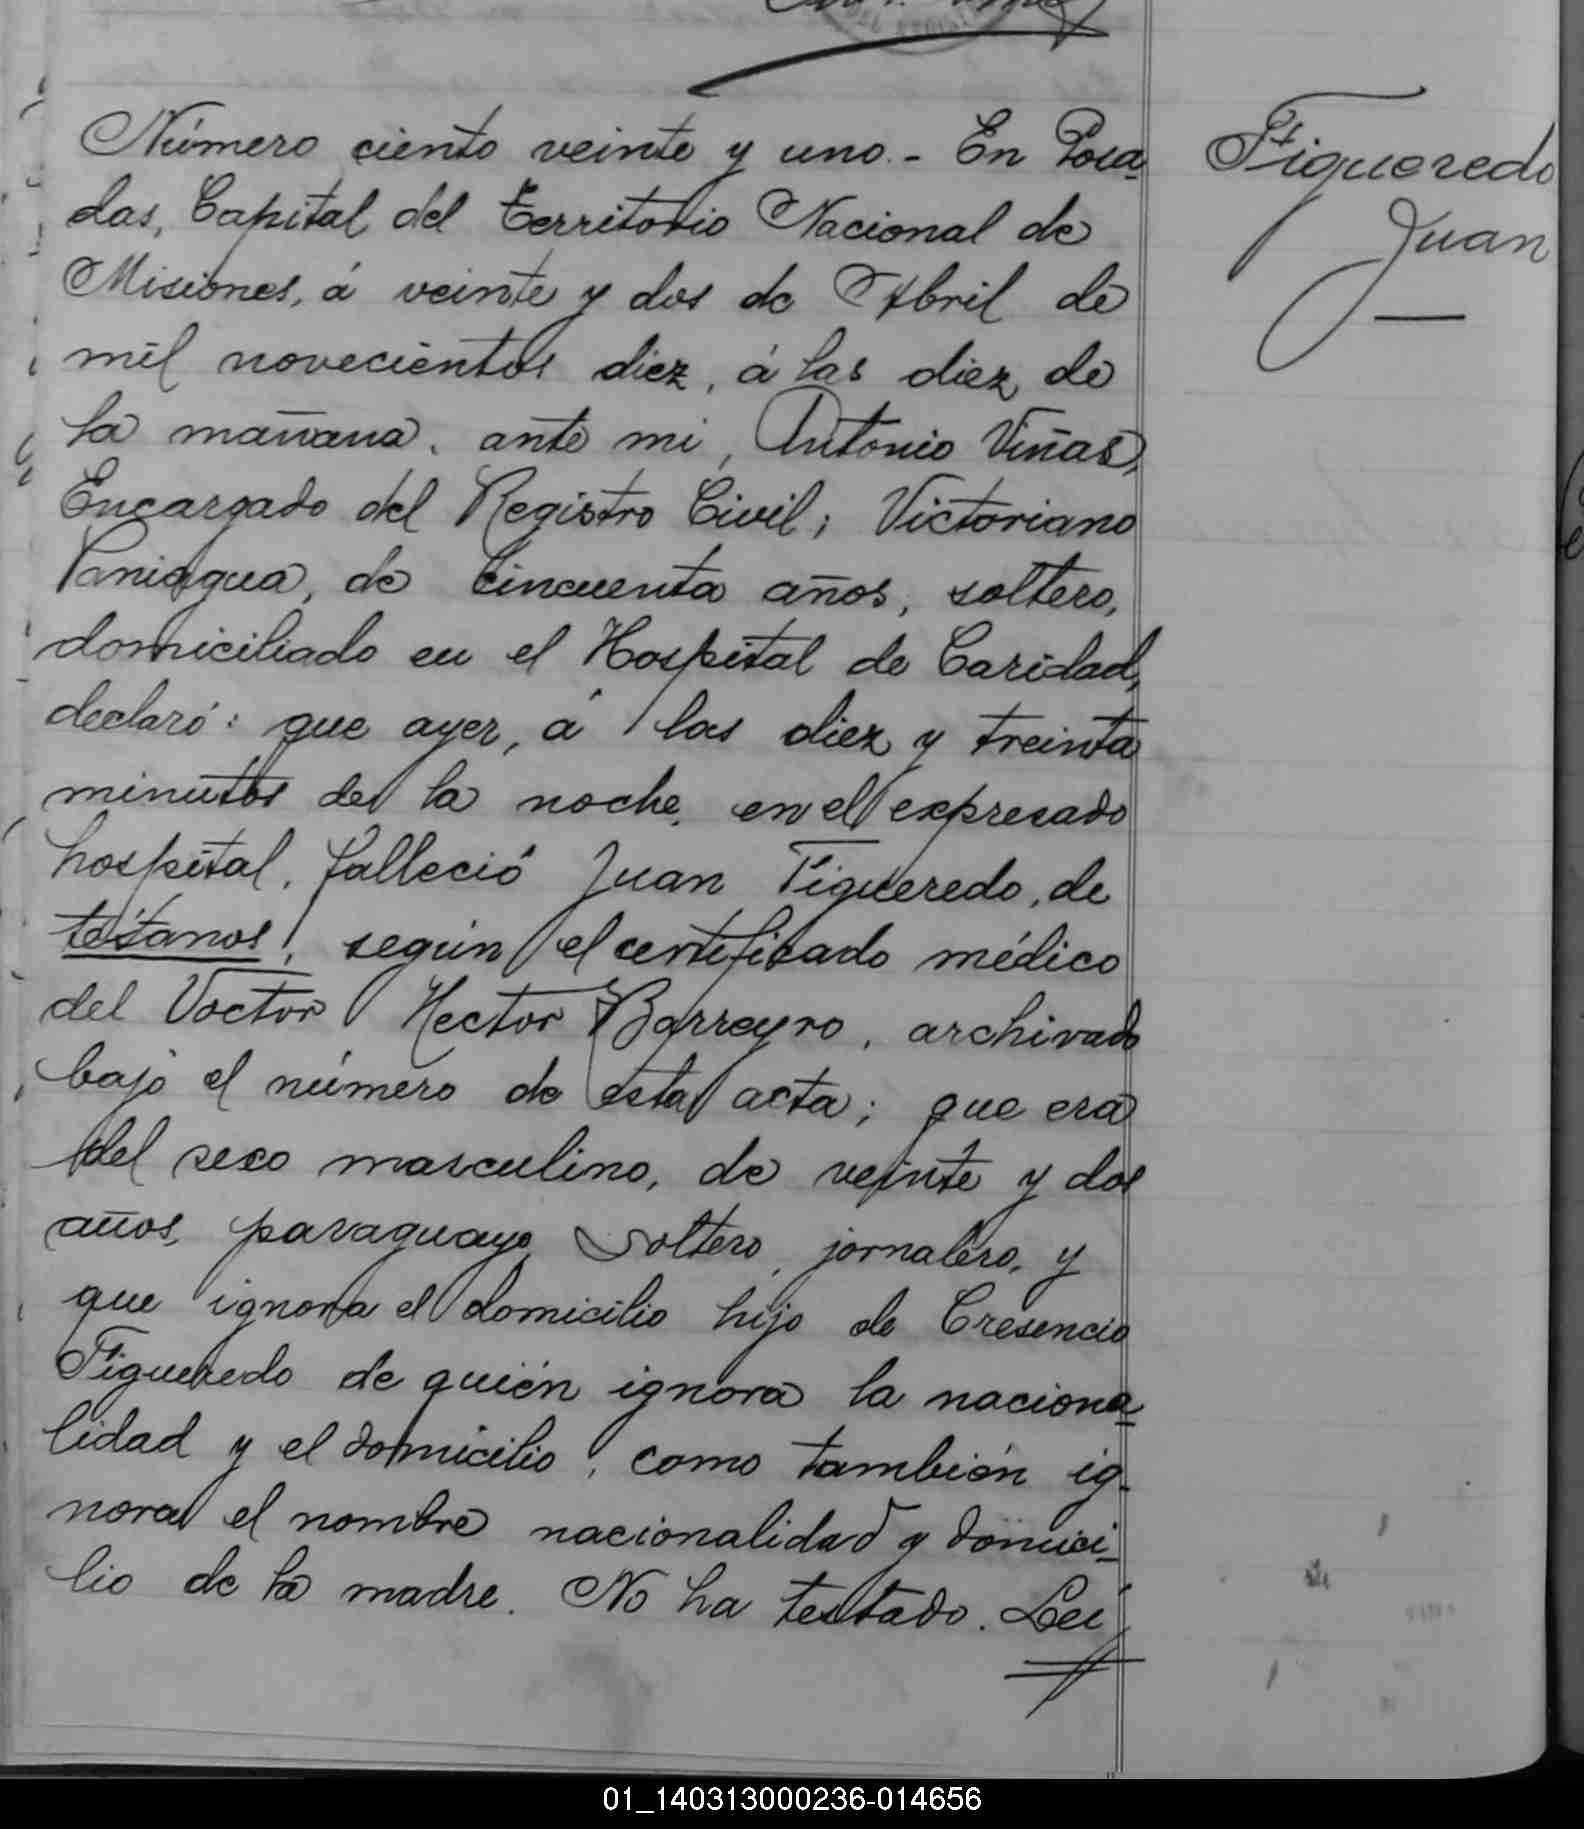 Número ciento veinte y uno.- En Posa-
das, Capital del Territorio Nacional de
Misiones, á veinte y dos de Abril de
mil novecientos diez, á las diez de
la mañana, ante mi, Antonio Viñas,
Encargado del Registro Civil; Victoriano
Paniagua, de cincuenta años, soltero,
domiciliado en el Hospital de Caridad,
declaró: que ayer, á las diez y treinta
minutos de la noche, en el expresado
hospital, falleció Juan Figueredo, de
tétanos, según el certificado médico
del Doctor Hector Barreyro, archivado
bajo el número de esta acta; que era
del sexo masculino, de veinte y dos
años, paraguayo, soltero, jornalero, y
que ignora el domicilio hijo de Cresencio
Figueredo de quién ignora la naciona-
lidad y el domicilio, como también ig-
nora el nombre nacionalidad y domici-
lio de la madre. No ha testado. Leí
Figueredo
Juan
01_140313000236-014656